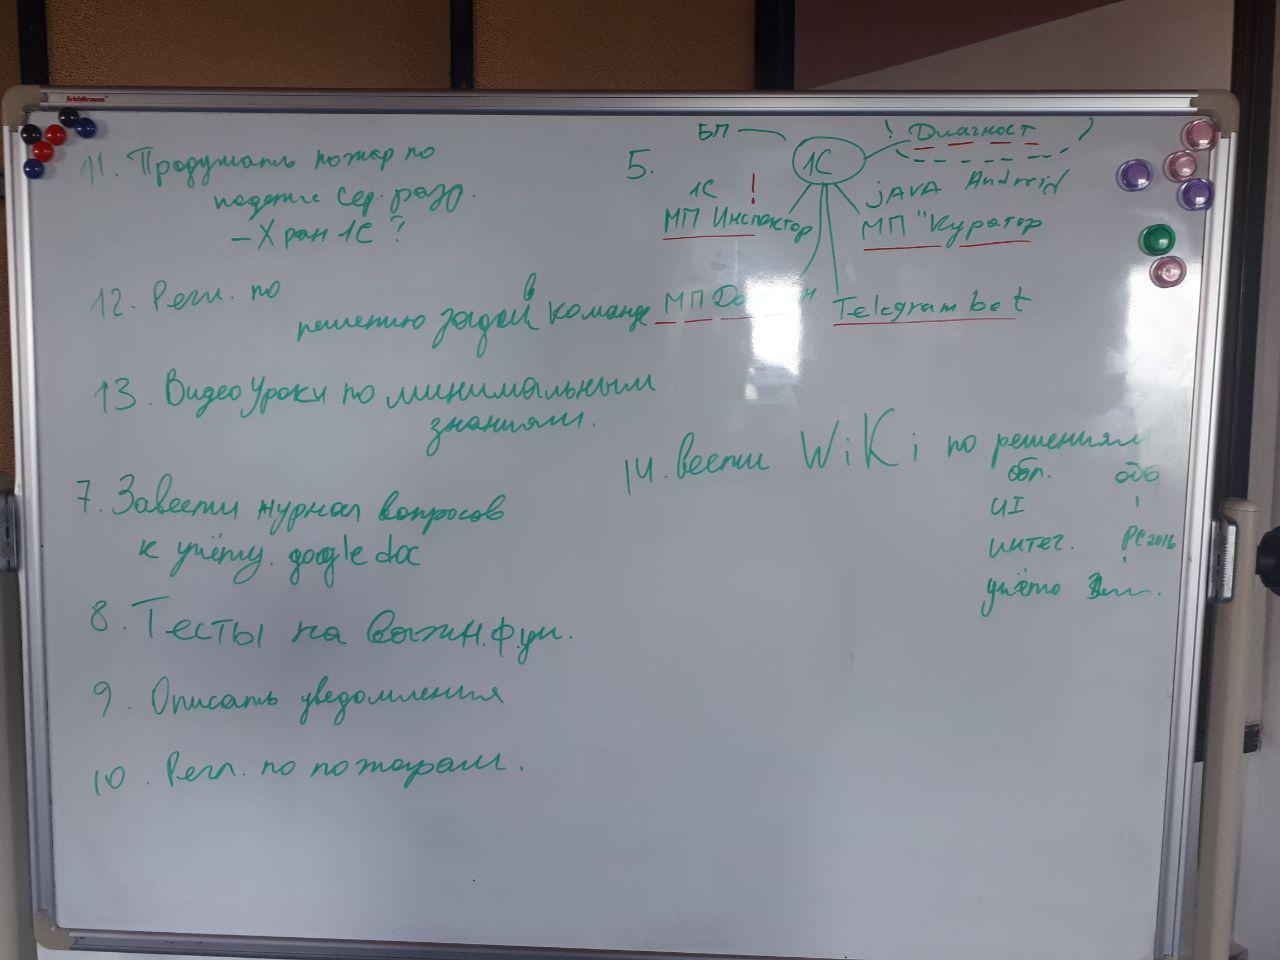 ErichKrause
11. Продумать пожар по
падение сер. разр.
– Хран 1С ?
12. Регл. по
решению задач в команде
13. Видео Уроки по минимальным
знаниям.
7. Завести журнал вопросов
к учёту. google doc
8. Тесты на важн. фун.
9. Описать уведомления
10. Регл. по пожарам.
5.
БП
1С
! Диагност
1С !
МП Инспектор
JAVA Android
МП "Куратор
МП
Telegram bot
14. Вести WiKi по решениям
обл.
UI
интег.
РС 2016
учёто